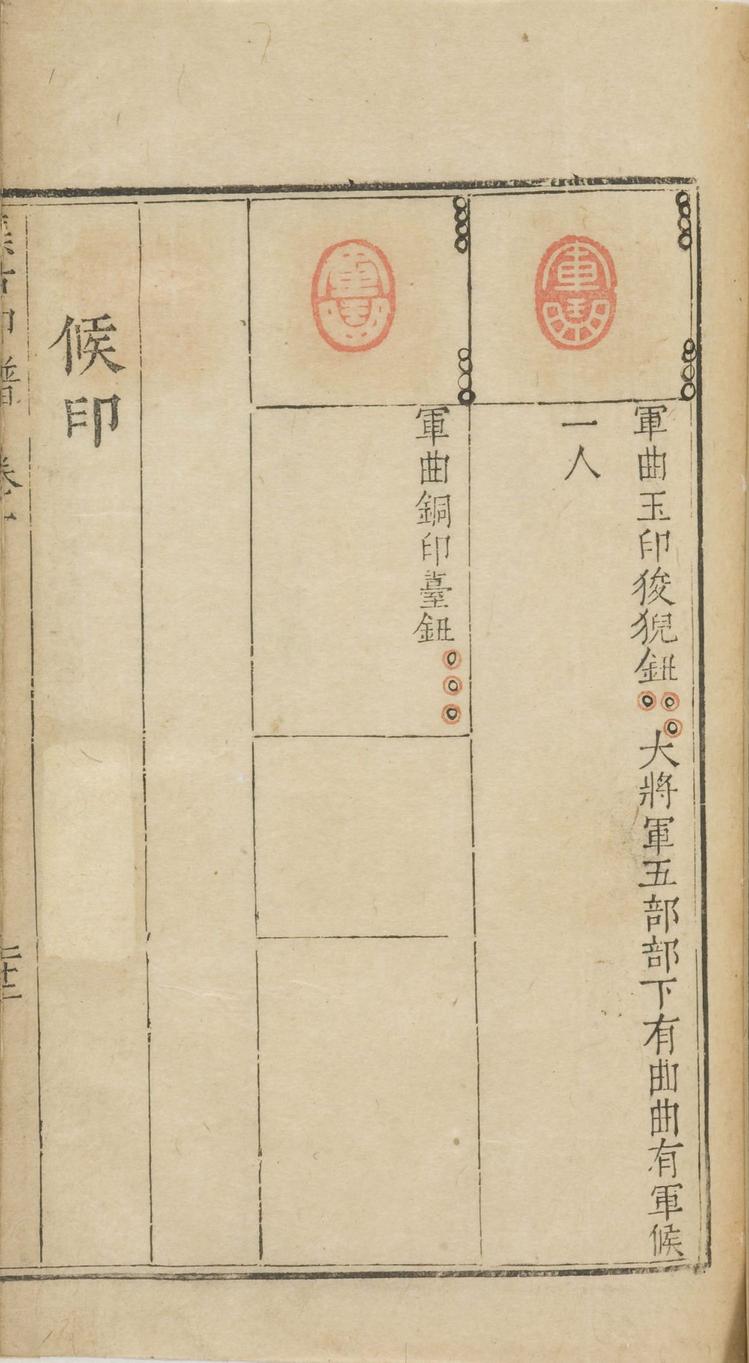 軍曲
軍曲玉印狻猊鈕大將軍五部部下有曲曲有軍候
一人
軍曲
軍曲銅印臺鈕
候印
集古印譜 卷之一